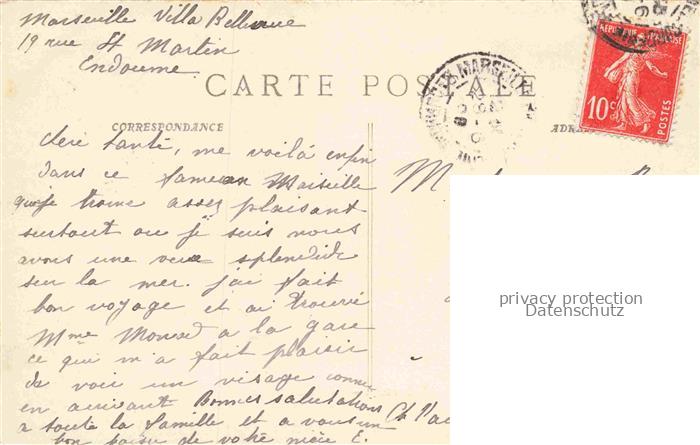 Marseille Villa Bellevue
19 rue St Martin
Endoume
CARTE POSTALE
RÉPUBLIQUE FRANÇAISE
10c
POSTES
MARSEILLE
CORRESPONDANCE
Chere tante, me voilá enfin
dans ce fameux Marseille
que je trouve assez plaisant
surtout ou je suis nous
avons une vue splendide
sur la mer. j'ai fait
bon voyage et ai trouvé
Mme a la gare
ce qui m'a fait plaisir
de voir un visage connu
en arrivant Bonnes salutations
a toute la famille et a vous un
bon baiser de votre niéce E.
M
privacy protection
Datenschutz